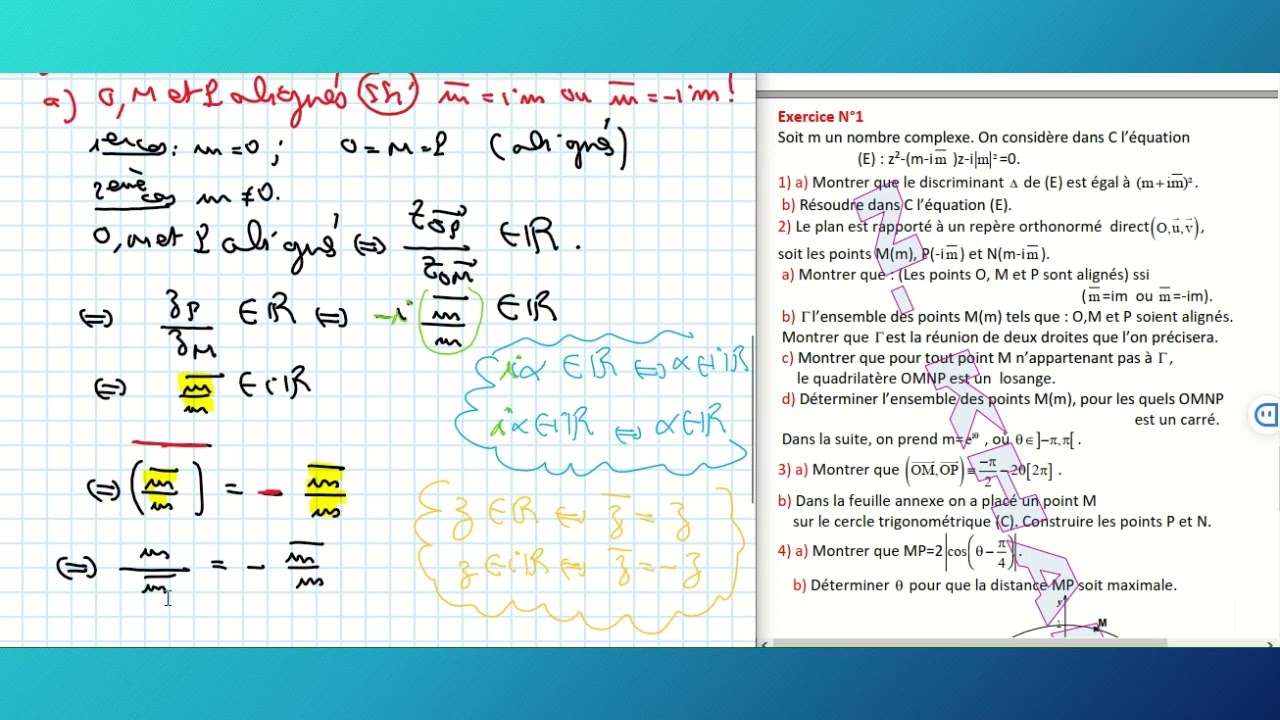 a) O, M et P alignés ssi m̅ = im ou m̅ = -im !
1er cas : m = 0 ; O = M = P (alignés)
2ème cas m ≠ 0.
O, M et P alignés ⇔ z_OP⃗ / z_OM⃗ ∈ ℝ.
⇔ z_P / z_M ∈ ℝ ⇔ -i (m̅/m) ∈ ℝ
⇔ m̅/m ∈ iℝ
iα ∈ ℝ ⇔ α ∈ iℝ
iα ∈ iℝ ⇔ α ∈ ℝ
⇔ \overline{(m̅/m)} = - m̅/m
z ∈ ℝ ⇔ z̅ = z
z ∈ iℝ ⇔ z̅ = -z
⇔ m/m̅ = - m̅/m
Exercice N°1
Soit m un nombre complexe. On considère dans C l’équation
(E) : z²-(m-i m̅ )z-i|m|²=0.
1) a) Montrer que le discriminant Δ de (E) est égal à (m+im̅)².
b) Résoudre dans C l’équation (E).
2) Le plan est rapporté à un repère orthonormé direct(O,u⃗,v⃗),
soit les points M(m), P(-i m̅) et N(m-i m̅).
a) Montrer que : (Les points O, M et P sont alignés) ssi
(m̅=im ou m̅=-im).
b) Γ l’ensemble des points M(m) tels que : O,M et P soient alignés.
Montrer que Γ est la réunion de deux droites que l’on précisera.
c) Montrer que pour tout point M n’appartenant pas à Γ,
le quadrilatère OMNP est un losange.
d) Déterminer l’ensemble des points M(m), pour les quels OMNP
est un carré.
Dans la suite, on prend m=e^{iθ} , où θ∈]-π,π[ .
3) a) Montrer que (OM⃗,OP⃗)≡-π/2-2θ[2π] .
b) Dans la feuille annexe on a placé un point M
sur le cercle trigonométrique (C). Construire les points P et N.
4) a) Montrer que MP=2|cos(θ-π/4)|.
b) Déterminer θ pour que la distance MP soit maximale.
M